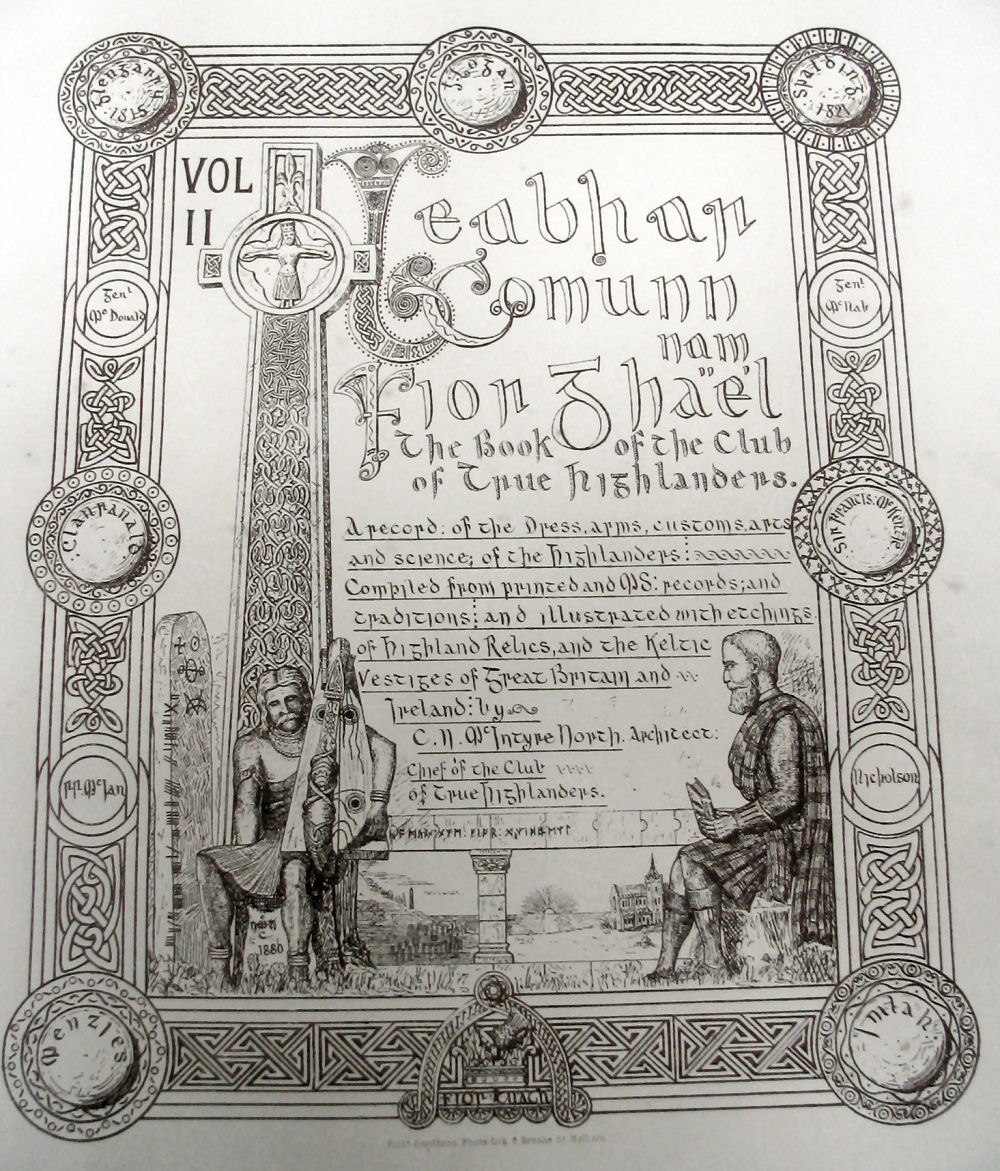 Glengarry
1815
Logan
Spalding
1821
VOL
II
Leabhar
Comunn
nam
Fior Ghäël
The Book of the Club
of True Highlanders.
Genl
Mc Donald
Genl
Mc Nab
A record: of the Dress, arms, customs, arts
and science; of the Highlanders:
Compiled from printed and MS: records; and
traditions: and illustrated with etchings
of Highland Relics, and the Keltic
Vestiges of Great Britain and
Ireland: by
C. N. McIntyre North, Architect:
Chief of the Club
of True Highlanders.
Clanranald
Sir Francis. McKenzie
Mc Ian
Nicholson
1880
Menzies
FIOR